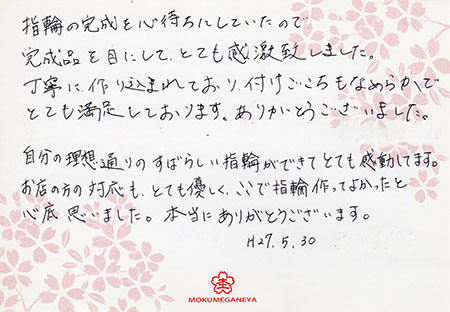 指輪の完成を心待ちにしていたので、
完成品を目にして、とても感激致しました。
丁寧に、作り込まれており、付けごこちもなめらかで
とても満足しております。ありがとうございました。
自分の理想通りのすばらしい指輪ができてとても感動してます。
お店の方の対応も、とても優しく、ここで指輪作ってよかったと
心底思いました。本当にありがとうございます。
H27.5.30
MOKUMEGANEYA